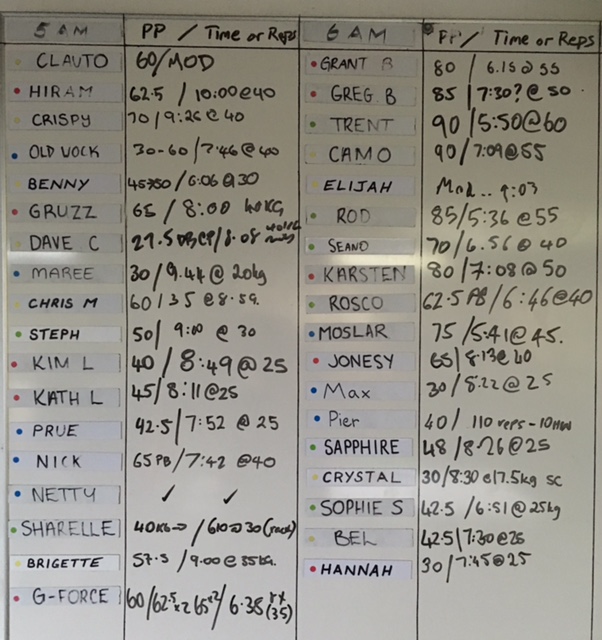 5 AM PP / Time or Reps
CLAUTO 60/MOD
HIRAM 62.5 / 10:00@40
CRISPY 70/9:26@40
OLD VOCK 30-60/7:46@40
BENNY /6:06@30
GRUZZ 65 / 8:00 40KG
DAVE C 27.5 /8.08
MAREE 30/9.44@20kg
CHRIS M 60/35@8.59.
STEPH 50/ 9:00 @ 30
KIM L 40/8:49@25
KATH L 45/8:11@25
PRUE 42.5/7:52 @ 25
NICK 65PB/7:42 @40
NETTY ✓ ✓
SHARELLE 40KG / 30
BRIGETTE 57.5 /9.00@35kg.
G-FORCE 60/62.5x2 65x2/6.38 (35)
6 AM / Time or Reps
GRANT B 80 / 6.15@55
GREG.B 85/7:30?@50
TRENT 90/5:50@60
CAMO 90/7:09@55
ELIJAH Mod.. 9:03
ROD 85/5:36@55
SEANO 70/6.56@40
KARSTEN 80/7:08@50
ROSCO 62.5PB/6:46@40
MOSLAR 75/5.41@45.
JONESY 65/8.13@40
Max 30/8.22@25
Pier 40/ 110 reps-10
SAPPHIRE 48/8.26@25
CRYSTAL 30/8:30@17.5kg sc
SOPHIE S 42.5/6:51@25kg
BEL 42.5/7:30@25
HANNAH 30/7:45@25